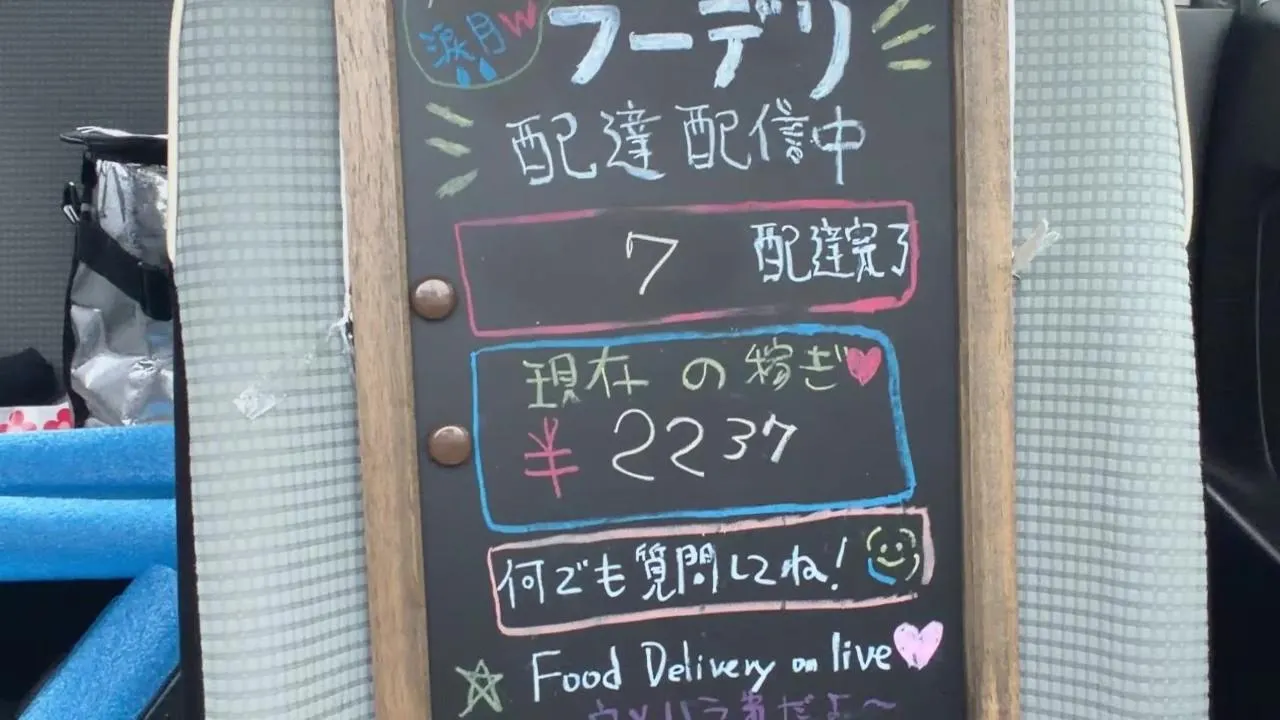 涙月W
フーデリ
配達配信中
7 配達完了
現在の稼ぎ
¥2237
何でも質問してね!
Food Delivery on live